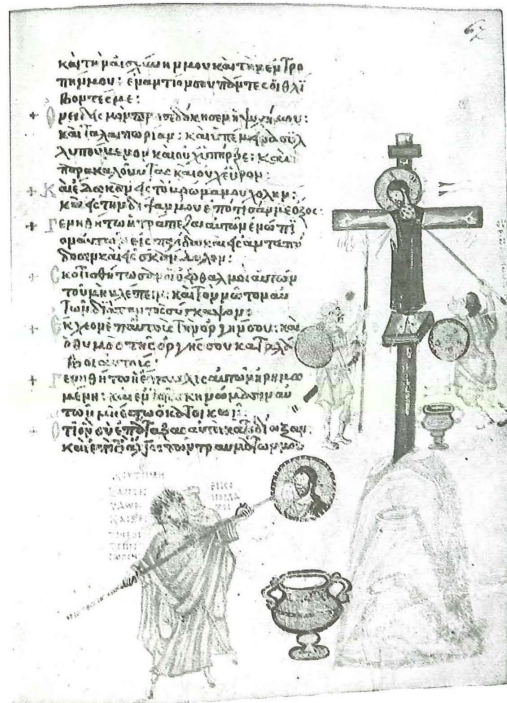 67
καὶ τὴν αἰσχύνην μου καὶ τὴν ἐντρο
πήν μου: ἐναντίον σου πάντες οἱ θλί
βοντές με:
+ Ὀνειδισμὸν προσεδόκησεν ἡ ψυχή μου:
καὶ ταλαιπωρίαν: καὶ ὑπέμεινα συλ
λυπούμενον καὶ οὐχ ὑπῆρξε: καὶ
παρακαλοῦντας καὶ οὐχ εὗρον:
+ Καὶ ἔδωκαν εἰς τὸ βρῶμά μου χολήν:
καὶ εἰς τὴν δίψαν μου ἐπότισάν με ὄξος:
+ Γενηθήτω ἡ τράπεζα αὐτῶν ἐνώπι
ον αὐτῶν εἰς παγίδα: καὶ εἰς ἀνταπό
δοσιν καὶ εἰς σκάνδαλον:
+ Σκοτισθήτωσαν οἱ ὀφθαλμοὶ αὐτῶν
τοῦ μὴ βλέπειν: καὶ τὸν νῶτον αὐ
τῶν διὰ παντὸς σύγκαμψον:
+ Ἔκχεον ἐπ' αὐτοὺς τὴν ὀργήν σου: καὶ
ὁ θυμὸς τῆς ὀργῆς σου καταλά
βοι αὐτούς:
+ Γενηθήτω ἡ ἔπαυλις αὐτῶν ἠρημω
μένη: καὶ ἐν τοῖς σκηνώμασιν αὐ
τῶν μὴ ἔστω ὁ κατοικῶν:
+ Ὅτι ὃν σὺ ἐπάταξας αὐτοὶ κατεδίωξαν:
καὶ ἐπὶ τὸ ἄλγος τῶν τραυμάτων μου